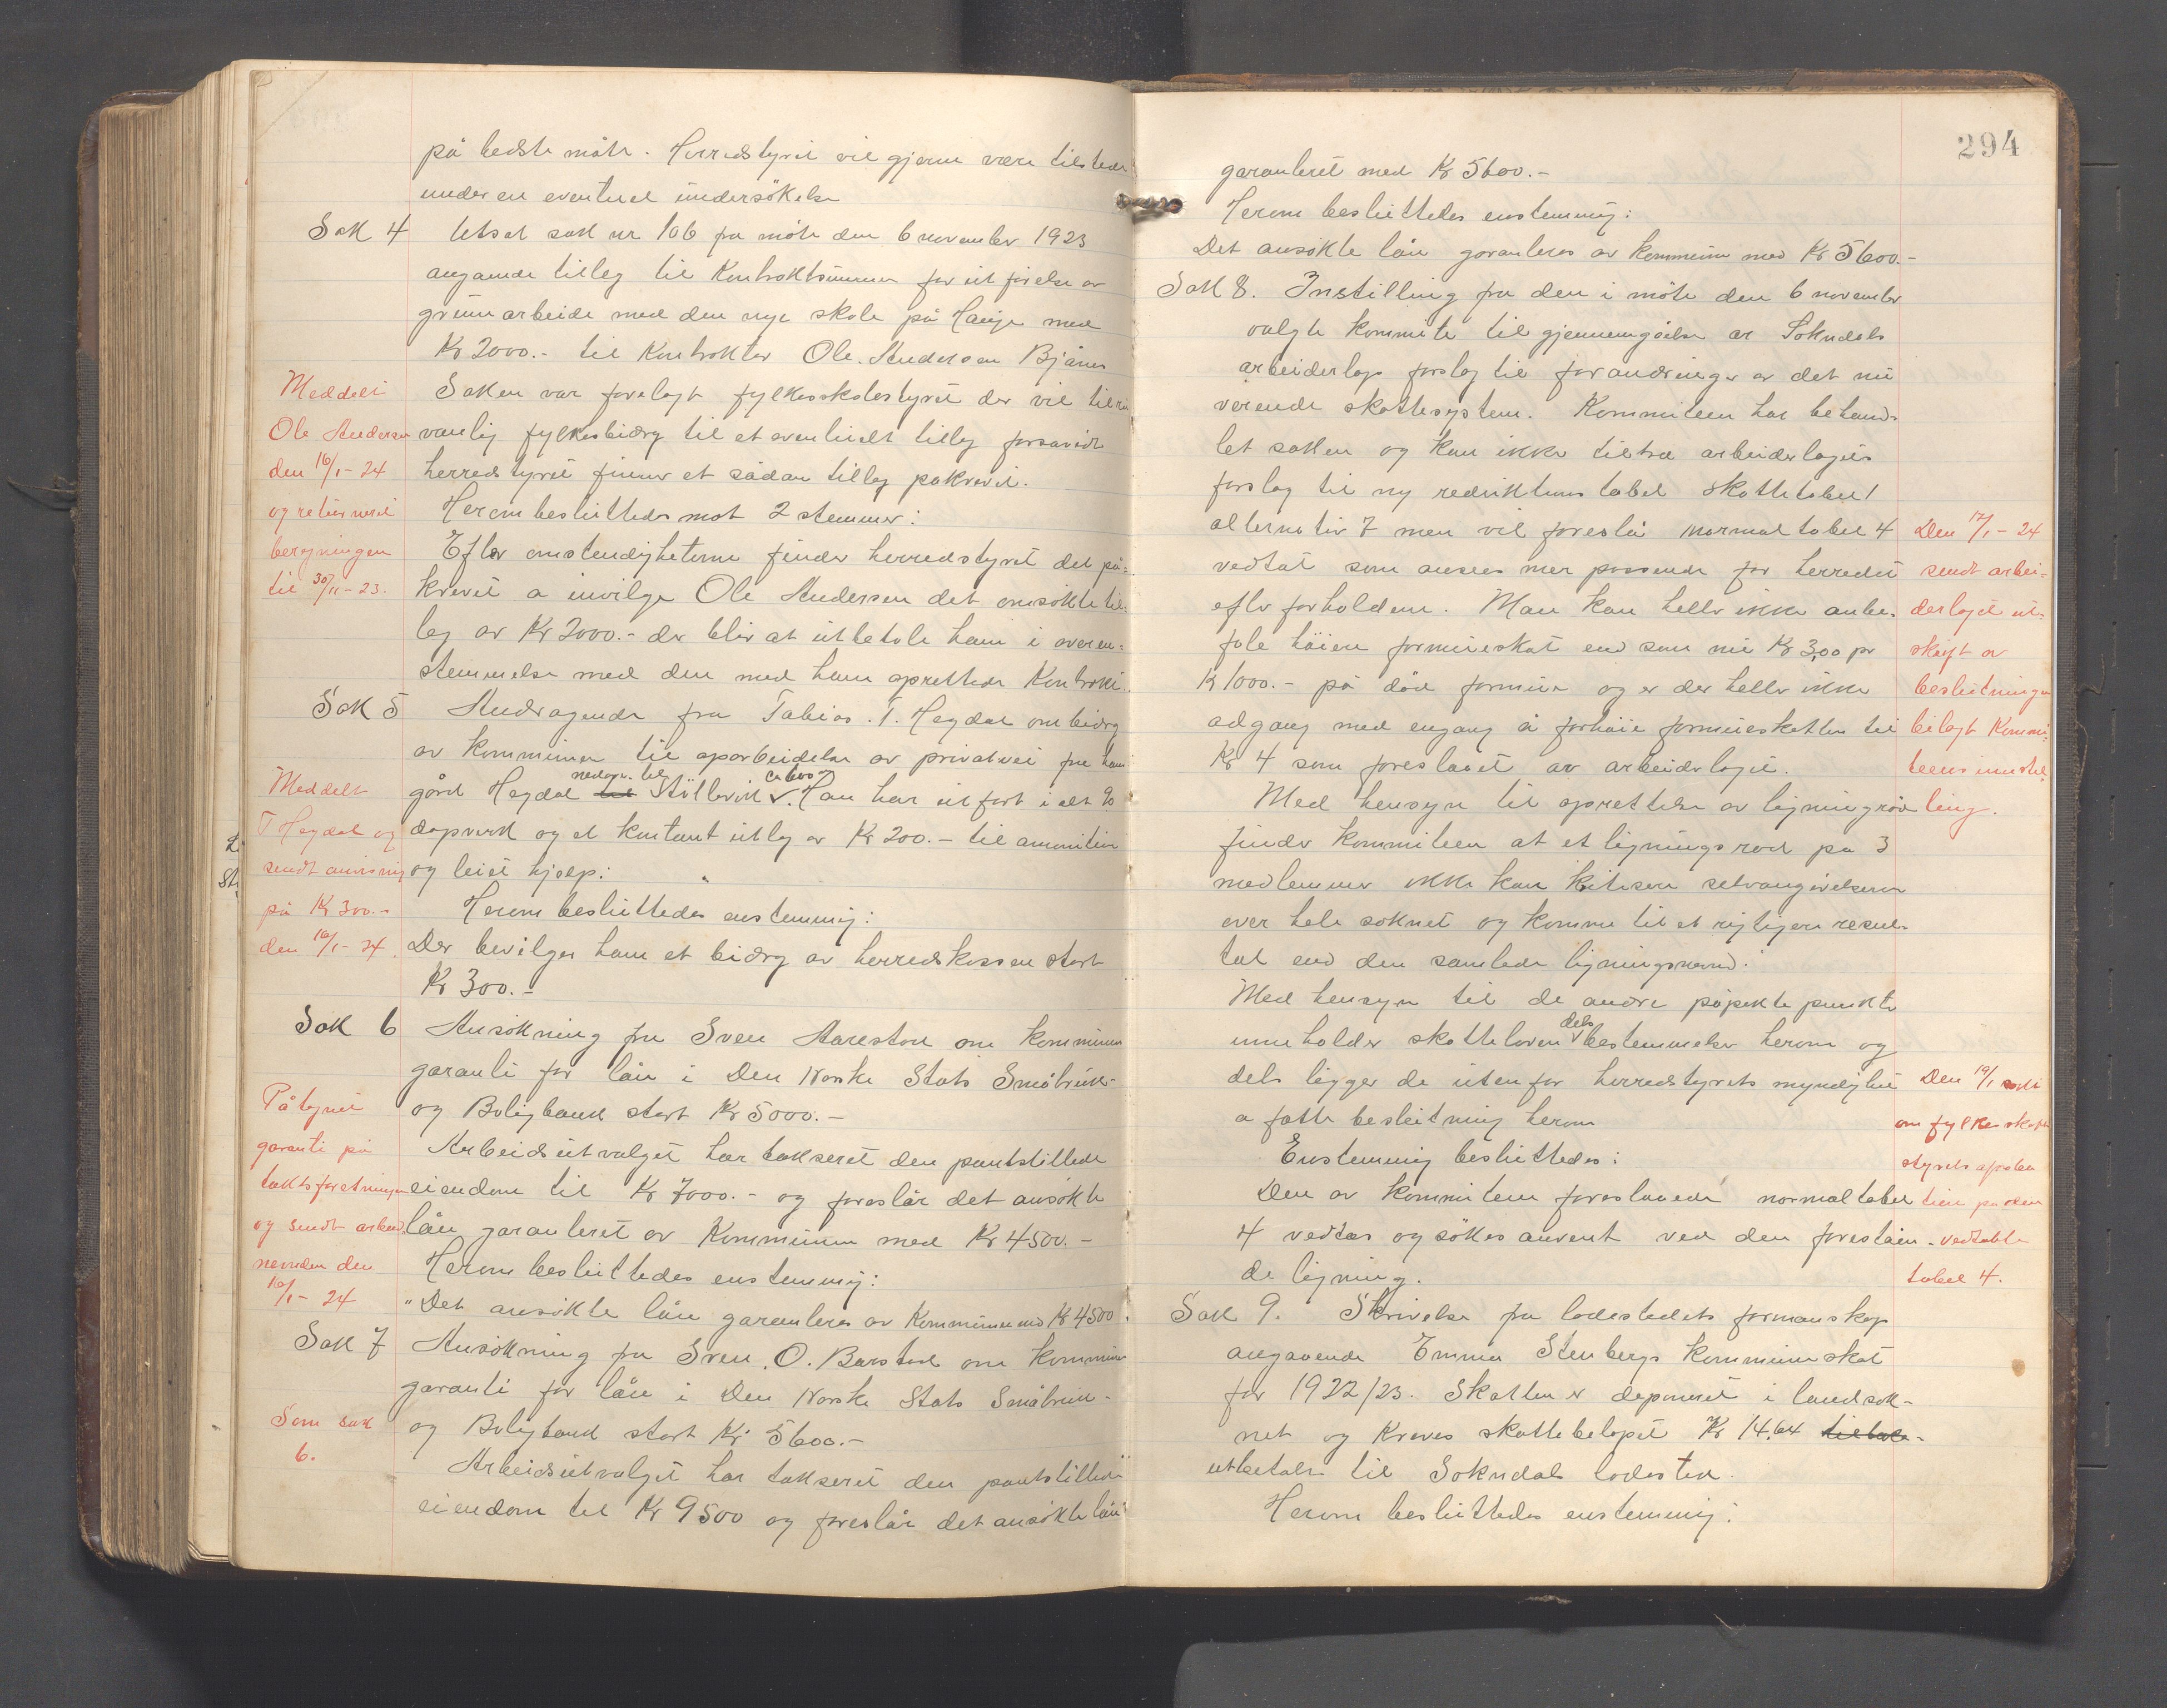 på bedste måte. Herredstyret vil gjerne være tilstede
under en eventuel undersökelse
Sak 4 Utsat sak nr 106 fra möte den 6 november 1923
angaaende tilleg til Kontraktsummen for utförelse av
grunnarbeide med den nye skole på Hauge med
Kr 2000.- til Kontraktör Ole Andersen Bjånes
Saken var forelagt fylkesskolestyret der vil tilrå
vanlig fylkesbidrag til et eventuelt tilleg forsavidt
herredstyret finner et sådan tilleg påkrevet.
Herom besluttedes mot 2 stemmer:
Efter omstendigheterne finder herredstyret det på-
krevet a invilge Ole Andersen det ansökte til-
leg av Kr 2000.- der blir at utbetale ham i overen-
stemmelse med den med ham oprettede Kontrakt.
Meddelt
Ole Andersen
den 16/1-24
og returneret
beregningen
til 30/11-23.
Sak 5 Andragende fra Tobias T. Hegdal om bidrag
av kommunen til oparbeidelse av privatvei fra ham
gård Hegdal til Stöllevik. Han har utfört i alt 90
dagsverk og et kontant utleg av Kr 200.- til amunition
og leiet hjælp.
Herom besluttedes enstemmig:
Der bevilges ham et bidrag av herredskassen stort
Kr 300.-
Meddelt
T Hegdal og
sendt anvisning
på Kr 300.-
den 16/1-24.
Sak 6 Ansökning fra Sven Aarestad om kommune
garanti for lån i Den Norske Stats Småbruk-
og Boligbank stort Kr 5000.-
Arbeidsutvalget har takseret den pantstillede
eiendom til Kr 7000.- og foreslår det ansökte
lån garanteret av Kommunen med Kr 4500.-
Herom besluttedes enstemmig:
"Det ansökte lån garanteres av Kommunen med Kr 4500.
Påtegnet
garanti på
takstforetningen
og sendt arbeids
nevnden den
16/1-24
Sak 7 Ansökning fra Sven O. Barstad om kommune
garanti for lån i Den Norske Stats Småbruk-
og Boligbank stort Kr 5600.-
Arbeidsutvalget har takseret den pantstillede
eiendom til Kr 9500 og foreslår det ansökte lån
Som sak
6.
294
garanteret med Kr 5600.-
Herom besluttedes enstemmig:
Det ansökte lån garanteres av kommunen med Kr 5600.-
Sak 8. Instilling fra den i möte den 6 november
valgte kommite til gjennemgåelse av Sokndals
arbeiderlags forslag til forandringer av det nu
verende skattesystem. Kommiteen har behand-
let saken og kan ikke tiltræ arbeiderlagets
forslag til ny reduktions tabel skattetabel 1
alternativ 7 men vil foreslå normal tabel 4
vedtat som ansees mer passende for herredet
efter forholdene. Man kan heller ikke anbe-
fale höiere formueskat end som nu Kr 3,00 pr
Kr 1000.- på död formue og er der heller ikke
adgang med engang å forhöie formueskatten til
Kr 4 som foreslaaet av arbeiderlaget.
Med hensyn til oprettelse av ligningsråd
finder kommiteen at et ligningsråd på 3
medlemmer ikke kan kritisere selvangivelserne
over hele soknet og komme til et rigtigere resul-
tat end den samlede ligningsnevnd.
Med hensyn til de andre påpekte punkter
inneholder skatteloven dels bestemmelser herom og
dels ligger de utenfor herredstyrets myndighet
a fatte beslutning herom
Enstemmig besluttedes:
Den av kommiteen foreslaaede normaltabel
4 vedtas og sökes anvent ved den foreståen-
de ligning.
Den 17/1-24
sendt arbei-
derlaget ut-
skrift av
beslutningen
bilagt Kommi-
teens innstil-
ling.
Den 19/1 sökt
om fylkesskatte
styrets approba
tion på den
vedtatte
tabel 4.
Sak 9. Skrivelse fra ladestedets formanskap
angaaende Emma Stenbergs kommuneskat
for 1922/23. Skatten er deponeret i landsok-
net og kreves skattebelöpet Kr 14.64 tilbake-
utbetalt til Sokndals ladested.
Herom besluttedes enstemmig: